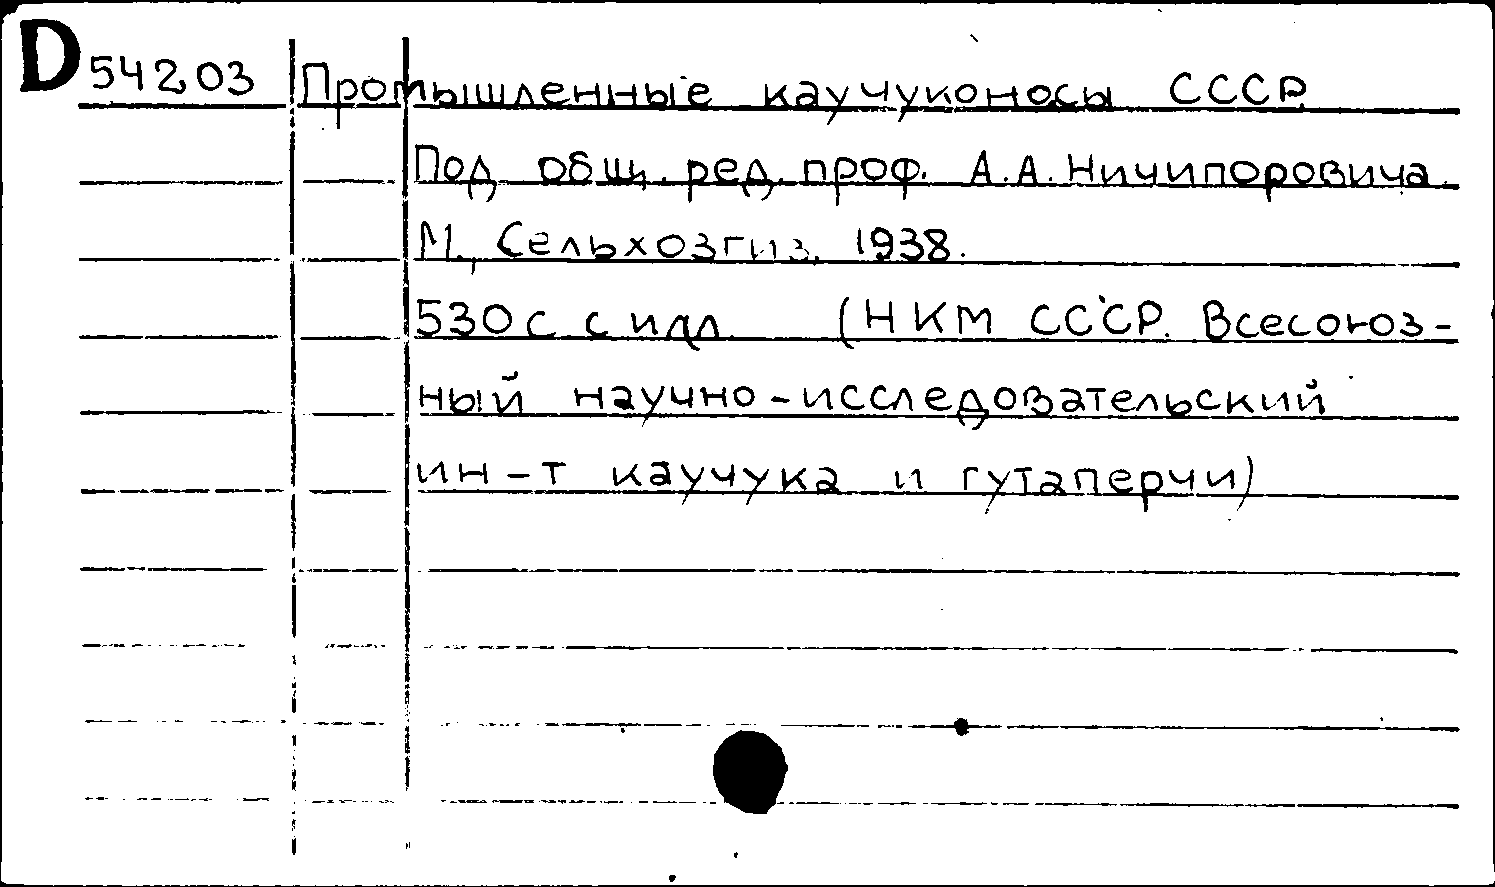 D 54203 Промышленные каучуконосы СССР
Под общ. ред. проф. А.А. Ничипоровича.
М., Сельхозгиз, 1938.
530 с с илл. (НКМ СССР. Всесоюз-
ный научно-исследовательский
ин-т каучука и гутаперчи)